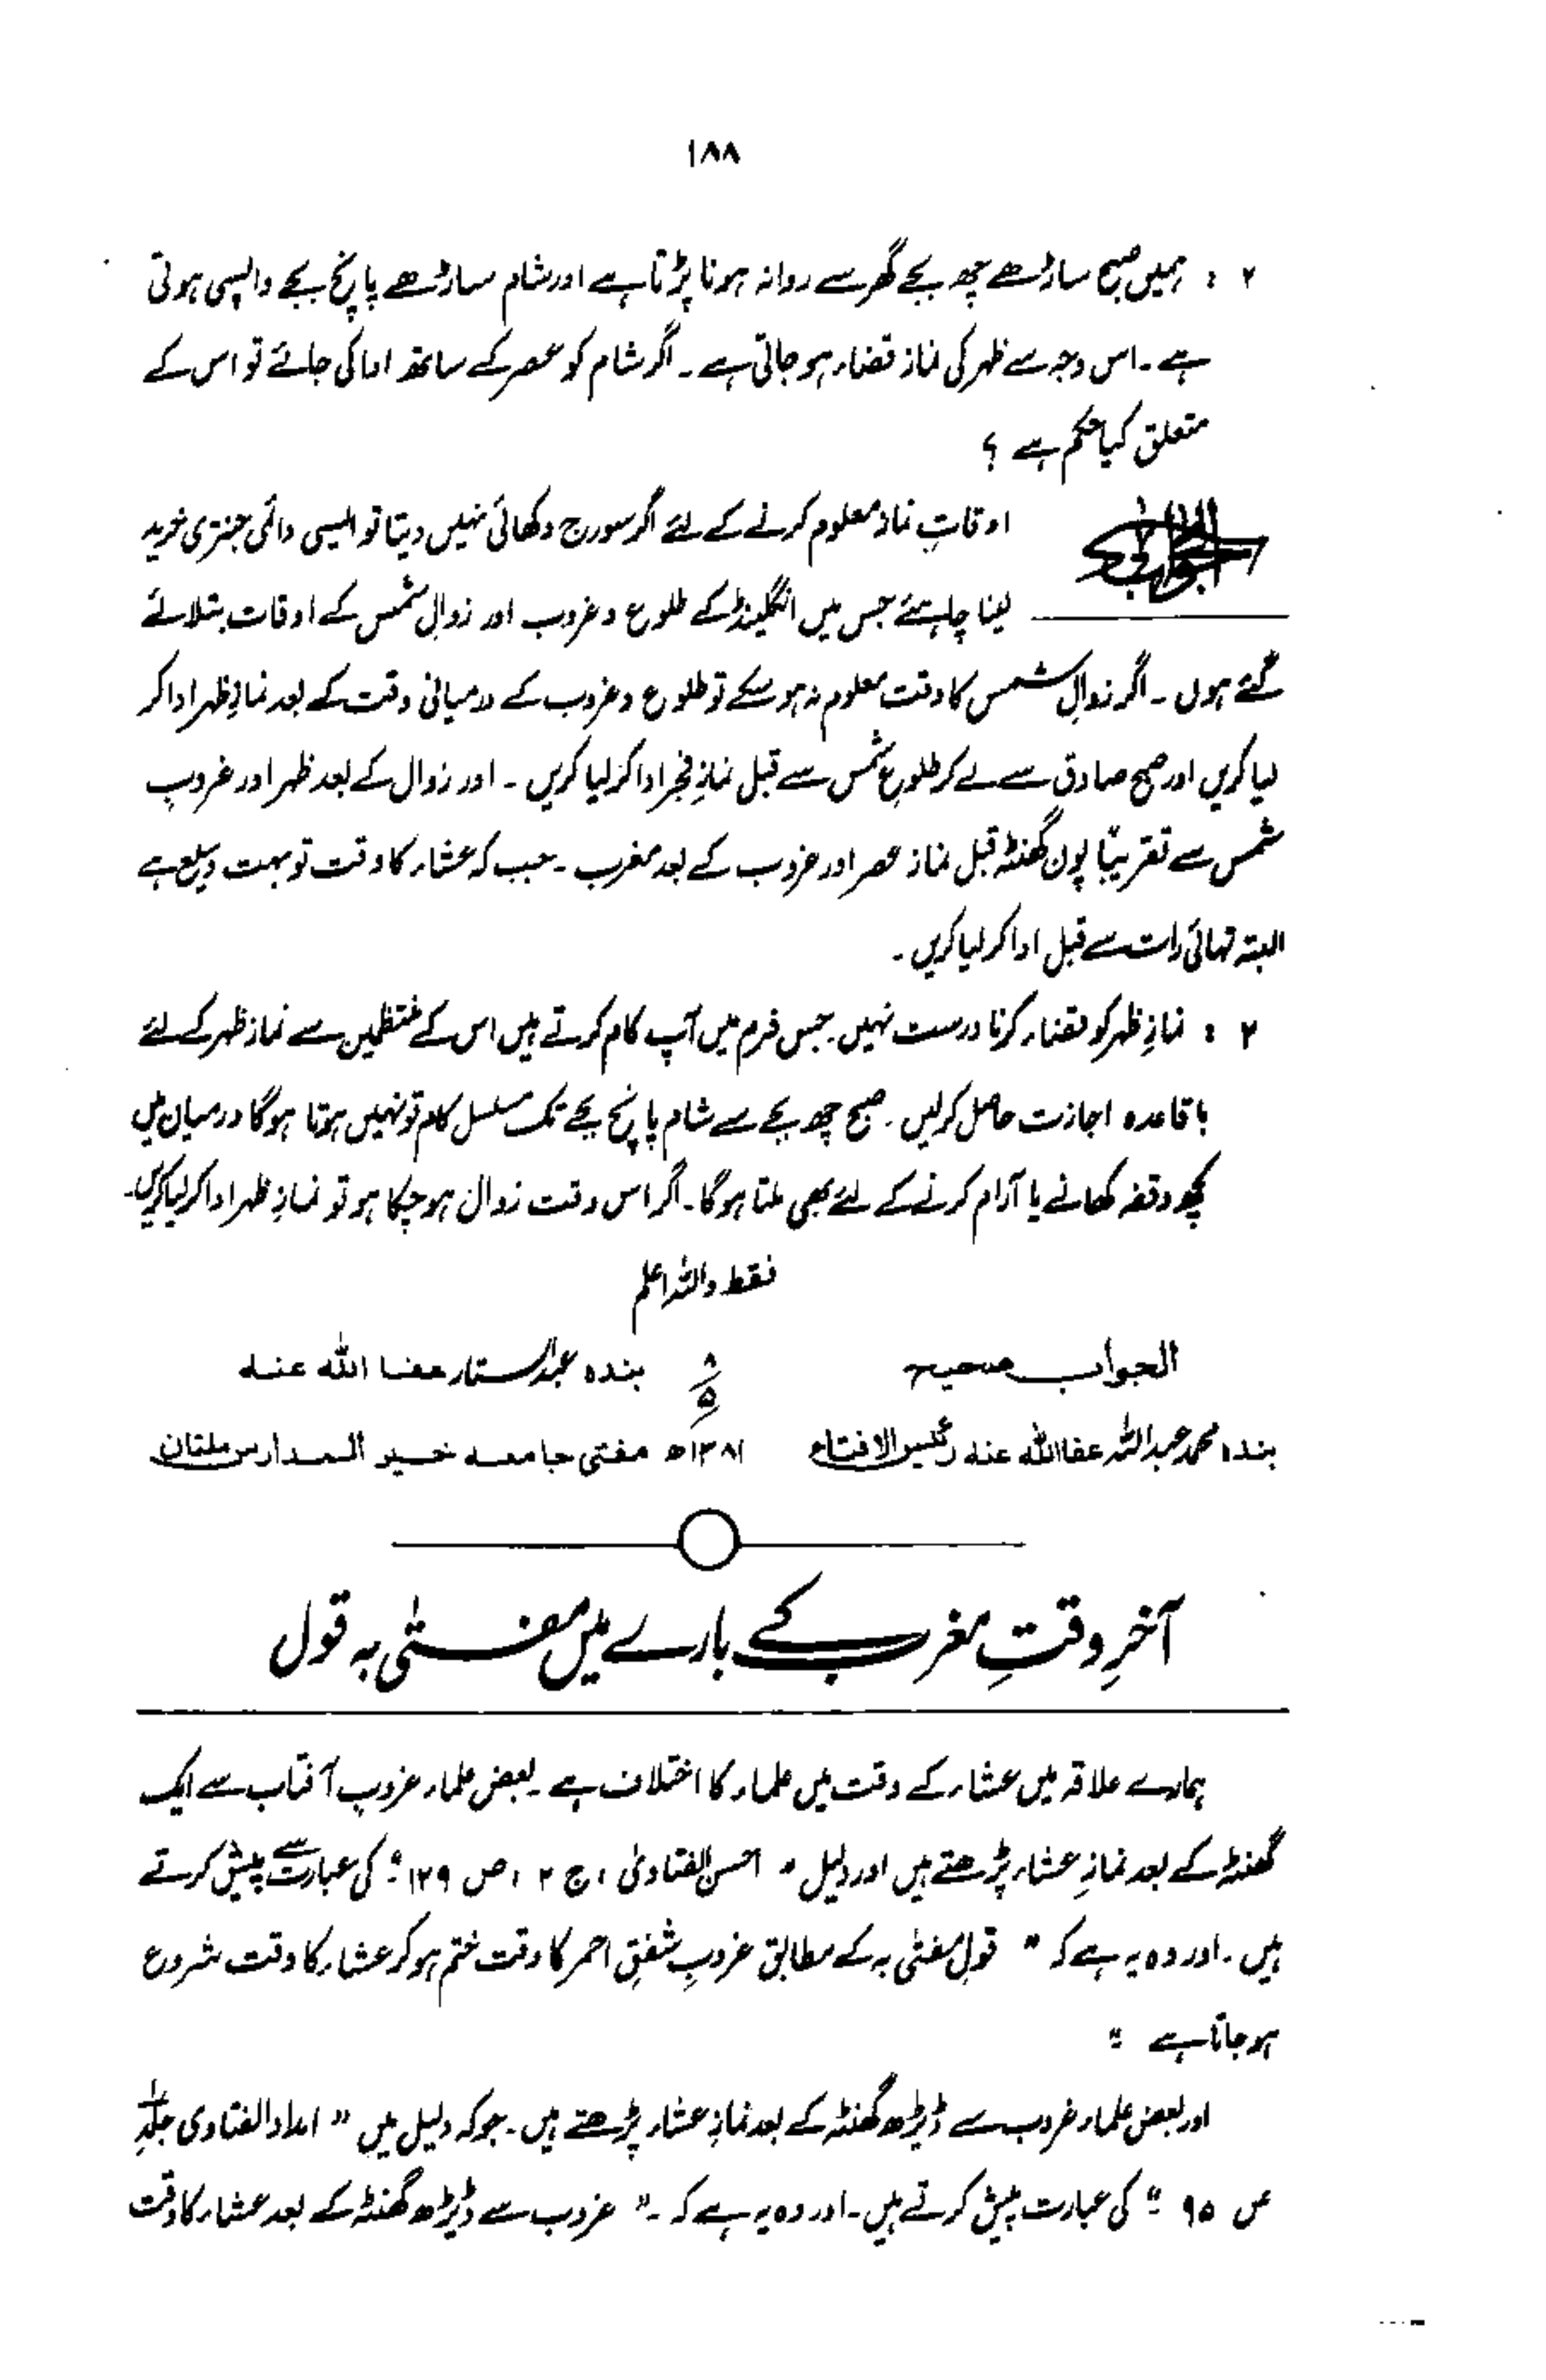 ۱۸۸
۲ : ہمیں صبح ساڑھے چھ بجے گھر سے روانہ ہونا پڑتا ہے اور شام ساڑھے پانچ بجے واپسی ہوتی
ہے ۔ اس وجہ سے ظہر کی نماز قضاء ہو جاتی ہے ۔ اگر شام کو عصر کے ساتھ ادا کی جائے تو اس کے
متعلق کیا حکم ہے ؟
الجواب اوقاتِ نماز معلوم کرنے کے لئے اگر سورج دکھائی نہیں دیتا تو ایسی دائمی جنتری خرید
لینا چاہئے جس میں انگلینڈ کے طلوع و غروب اور زوالِ شمس کے اوقات بتلائے
گئے ہوں ۔ اگر زوالِ شمس کا وقت معلوم نہ ہو سکے تو طلوع و غروب کے درمیانی وقت کے بعد نمازِ ظہر ادا کر
لیا کریں اور صبح صادق سے لے کر طلوعِ شمس سے قبل نمازِ فجر ادا کر لیا کریں ۔ اور زوال کے بعد ظہر اور غروبِ
شمس سے تقریبًا پون گھنٹہ قبل نماز عصر اور غروب کے بعد مغرب ۔ جب کہ عشاء کا وقت تو بہت وسیع ہے
البتہ تہائی رات سے قبل ادا کر لیا کریں ۔
۲ : نمازِ ظہر کو قضاء کرنا درست نہیں ۔ جس فرم میں آپ کام کرتے ہیں اس کے منتظمین سے نماز ظہر کے لئے
باقاعدہ اجازت حاصل کرلیں ۔ صبح چھ بجے سے شام پانچ بجے تک مسلسل کام تو نہیں ہوتا ہوگا درمیان میں
کچھ وقفہ کھانے یا آرام کرنے کے لئے بھی ملتا ہوگا ۔ اگر اس وقت زوال ہو چکا ہو تو نمازِ ظہر ادا کر لیا کریں ۔
فقط واللہ اعلم
الجواب صحیح ۸/۵ بندہ عبدالستار عفا اللہ عنہ
بندہ محمد عبداللہ عفا اللہ عنہ رئیس الافتاء ۱۳۸۱ھ مفتی جامعہ خیر المدارس ملتان
آخرِ وقتِ مغرب کے بارے میں مفتیٰ بہ قول
ہمارے علاقہ میں عشاء کے وقت میں علماء کا اختلاف ہے ۔ بعض علماء غروبِ آفتاب سے ایک
گھنٹہ کے بعد نمازِ عشاء پڑھتے ہیں اور دلیل " احسن الفتاویٰ ، ج ۲ ، ص ۱۲۹ " کی عبارت سے پیش کرتے
ہیں ۔ اور وہ یہ ہے کہ " قولِ مفتیٰ بہ کے مطابق غروبِ شفقِ احمر کا وقت ختم ہو کر عشاء کا وقت شروع
ہو جاتا ہے "
اور بعض علماء غروب سے ڈیڑھ گھنٹہ کے بعد نمازِ عشاء پڑھتے ہیں ۔ جو کہ دلیل میں " امداد الفتاوی جلد
ص ۹۵ " کی عبارت پیش کرتے ہیں ۔ اور وہ یہ ہے کہ ۔ " غروب سے ڈیڑھ گھنٹہ کے بعد عشاء کا وقت